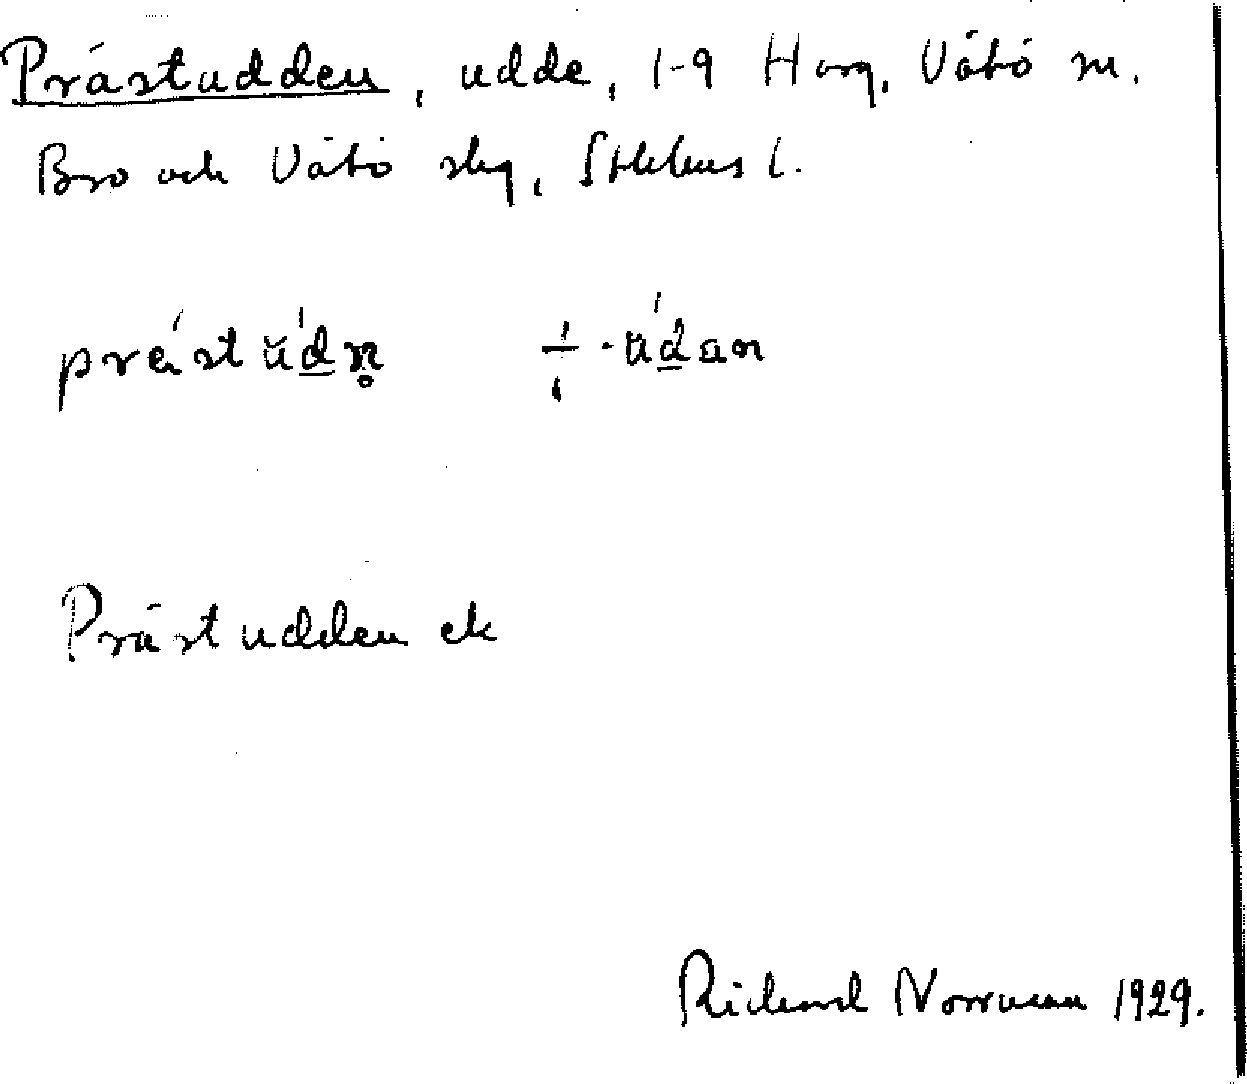 Prästudden, udde, 1-9 Harg, Vätö sn.
Bro och Vätö skg, Sthlms l.
prästŭdn̥ ÷ -ŭdan
Prästudden ek
Richard Norrman 1929.